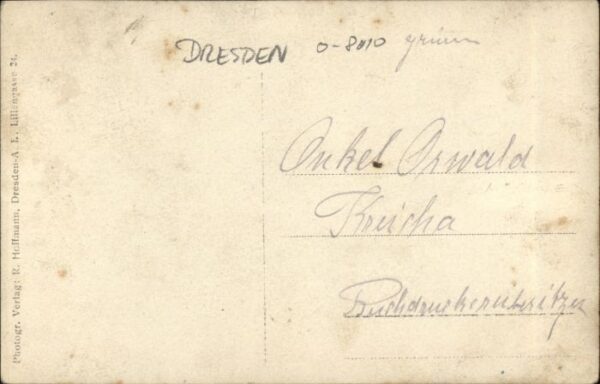 DRESDEN 0-8010 grün
Onkel Oswald
Kreicha
Buchdruckereibesitzer
Photogr. Verlag: R. Hoffmann, Dresden-A I., Liliengasse 24.